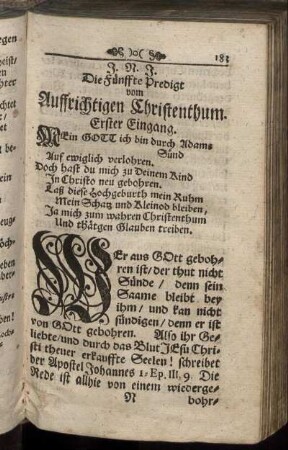 )o(
183
J. N. J.
Die Fünffte Predigt
vom
Auffrichtigen Christenthum.
Erster Eingang.
MEin GOTT ich bin durch Adams
Sünd
Auf ewiglich verlohren.
Doch hast du mich zu Deinem Kind
In Christo neu gebohren.
Laß diese Hochgeburth mein Ruhm
Mein Schatz und Kleinod bleiben,
Ja mich zum wahren Christenthum
Und thätgen Glauben treiben.
WEr aus GOtt geboh-
ren ist/ der thut nicht
Sünde/ denn sein
Saame bleibt bey
ihm/ und kan nicht
sündigen/ denn er ist
von GOtt gebohren. Also ihr Ge-
liebte/ und durch das Blut JEsu Chri-
sti theuer erkauffte Seelen! schreibet
der Apostel Johannes 1. Ep. III. 9. Die
Rede ist allhie von einem wiederge-
N
bohr-